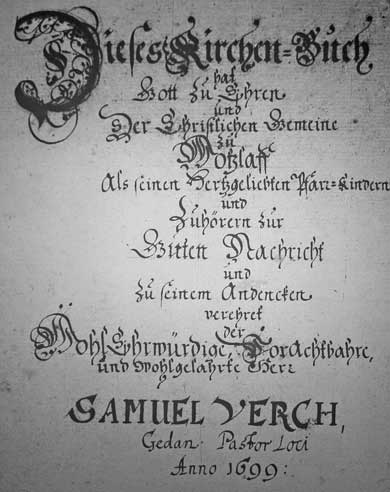 Dieses Kirchen=Buch
hat
Gott zu Ehren
und
Der Christlichen Gemeine
zu
Wotzlaff
Als seinen Hertzgeliebten Pfarr=Kindern
und
Zuhörern zur
Gutten Nachricht
und
zu seinem Andencken
verehret
der
WohlEhrwürdige, Vorachtbahre,
und wohlgelährte Herr
SAMUEL VERCH,
Gedan. Pastor Loci
Anno 1699: